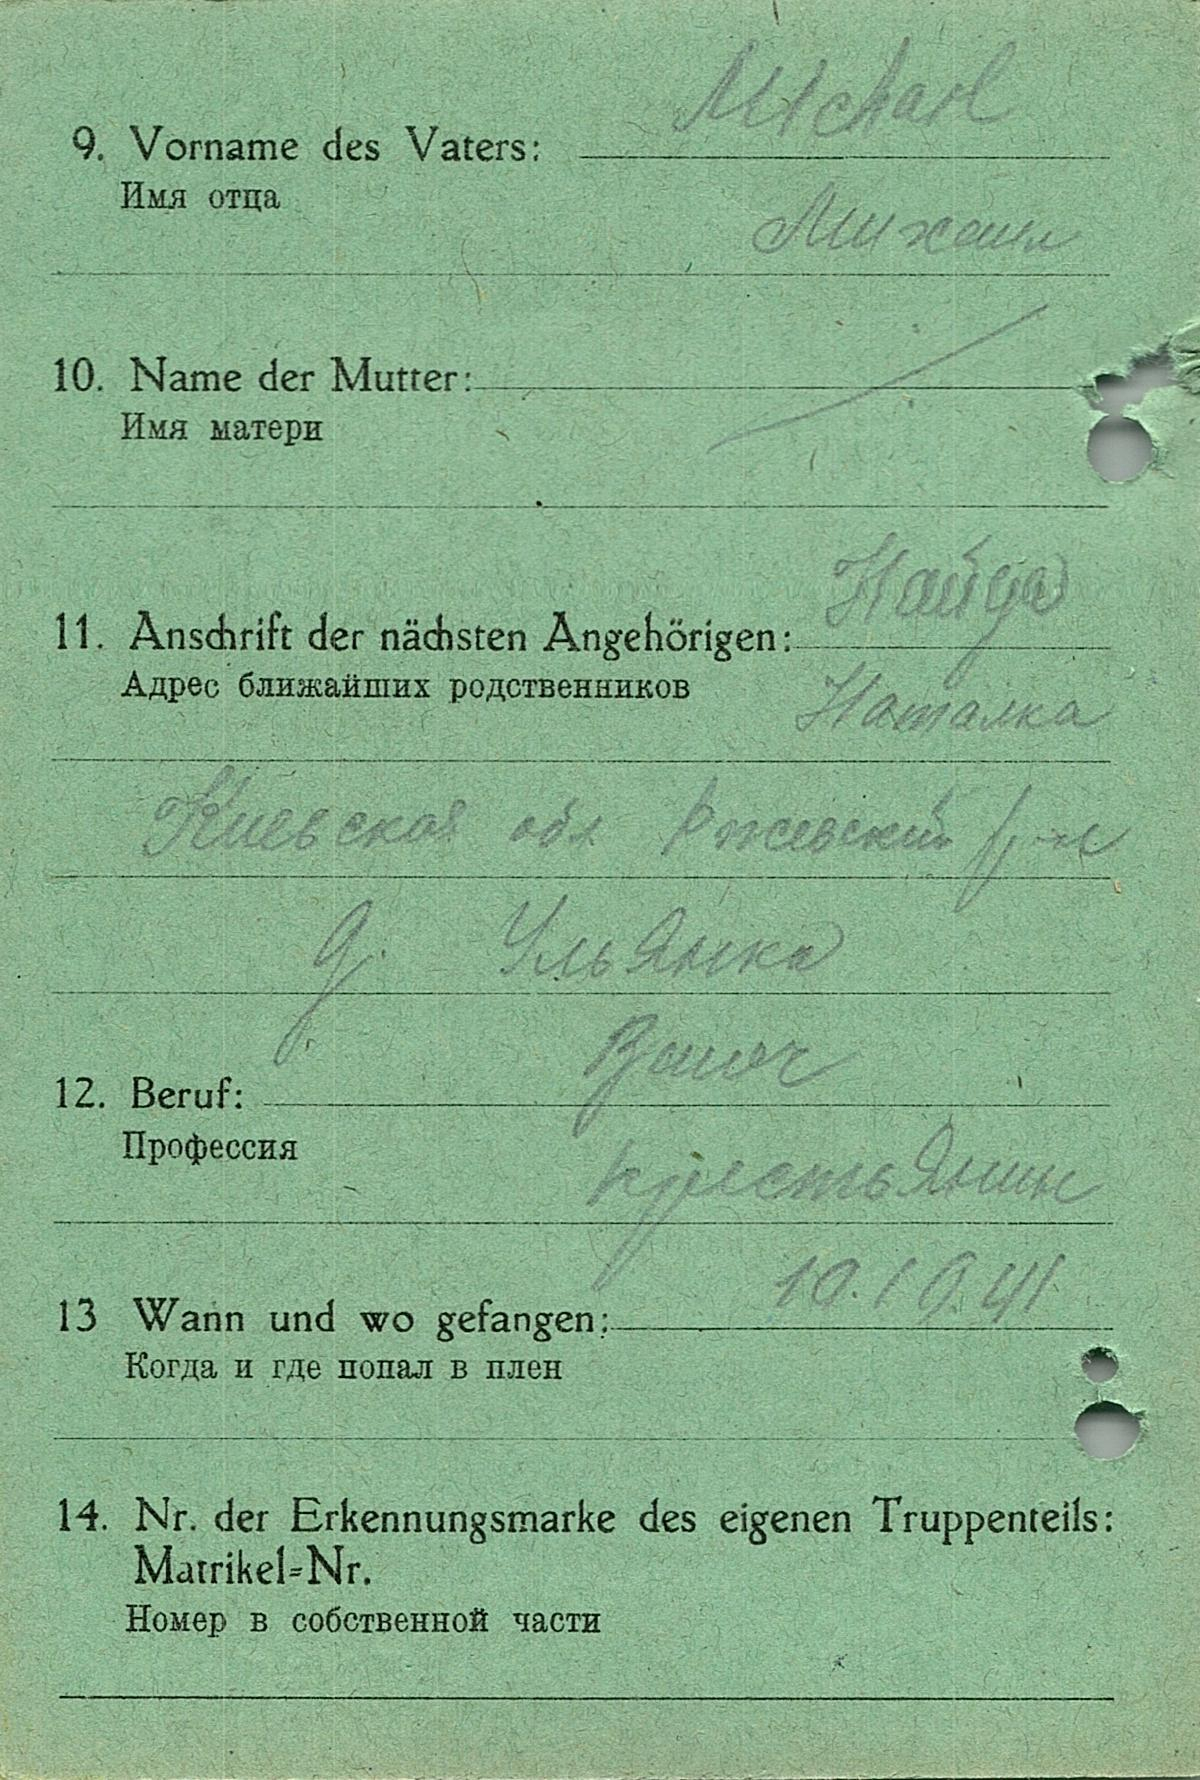 Michael
9. Vorname des Vaters:
Имя отца
Михаил
10. Name der Mutter:
Имя матери
Найда
11. Anschrift der nächsten Angehörigen:
Адрес ближайших родственников
Наталка
Киевская обл Ржевский р-н
д. Ульянка
12. Beruf:
Профессия
крестьянин
13 Wann und wo gefangen: 10.10.41
Когда и где попал в плен
14. Nr. der Erkennungsmarke des eigenen Truppenteils:
Matrikel=Nr.
Номер в собственной части